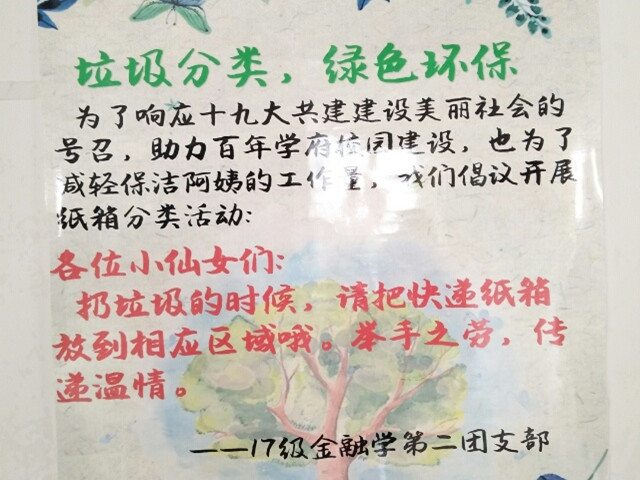 垃圾分类，绿色环保
为了响应十九大共建建设美丽社会的
号召，助力百年学府校园建设，也为了
减轻保洁阿姨的工作量，我们倡议开展
纸箱分类活动:
各位小仙女们:
扔垃圾的时候，请把快递纸箱
放到相应区域哦。举手之劳，传
递温情。
——17级金融学第二团支部